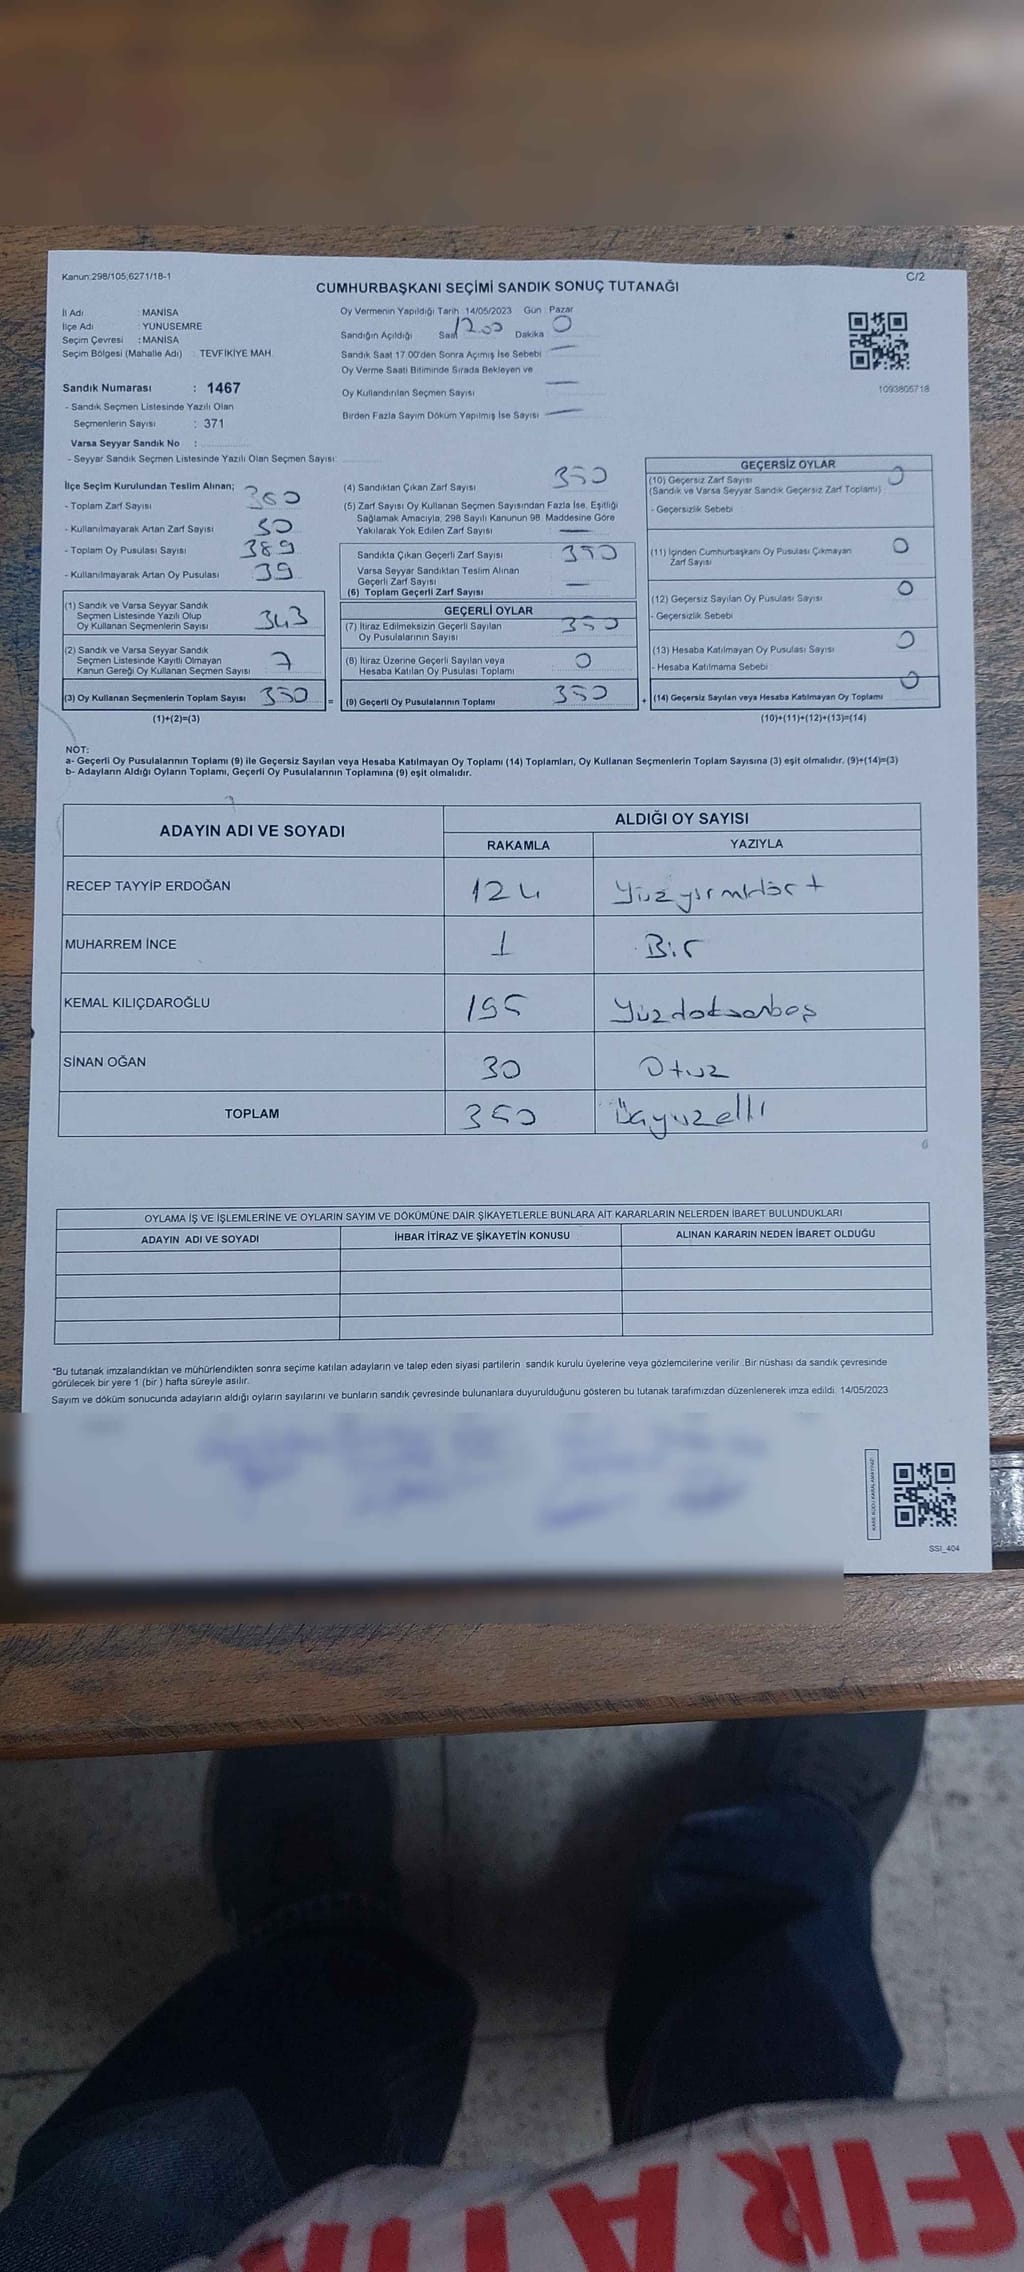 Kanun:298/105,6271/18-1
C/2
CUMHURBAŞKANI SEÇİMİ SANDIK SONUÇ TUTANAĞI
İl Adı : MANİSA
İlçe Adı : YUNUSEMRE
Seçim Çevresi : MANİSA
Seçim Bölgesi (Mahalle Adı) : TEVFİKİYE MAH.
Sandık Numarası : 1467
- Sandık Seçmen Listesinde Yazılı Olan
Seçmenlerin Sayısı : 371
Varsa Seyyar Sandık No :
- Seyyar Sandık Seçmen Listesinde Yazılı Olan Seçmen Sayısı:
Oy Vermenin Yapıldığı Tarih : 14/05/2023 Gün : Pazar
Sandığın Açıldığı Saat Dakika 0
Sandık Saat 17.00'den Sonra Açımış İse Sebebi
Oy Verme Saati Bitiminde Sırada Bekleyen ve
Oy Kullandırılan Seçmen Sayısı
Birden Fazla Sayım Döküm Yapılmış İse Sayısı
1093805718
İlçe Seçim Kurulundan Teslim Alınan;
- Toplam Zarf Sayısı
- Kullanılmayarak Artan Zarf Sayısı
- Toplam Oy Pusulası Sayısı 389
- Kullanılmayarak Artan Oy Pusulası 39
(1) Sandık ve Varsa Seyyar Sandık
Seçmen Listesinde Yazılı Olup
Oy Kullanan Seçmenlerin Sayısı 343
(2) Sandık ve Varsa Seyyar Sandık
Seçmen Listesinde Kayıtlı Olmayan
Kanun Gereği Oy Kullanan Seçmen Sayısı 7
(3) Oy Kullanan Seçmenlerin Toplam Sayısı 350 =
(1)+(2)=(3)
(4) Sandıktan Çıkan Zarf Sayısı 350
(5) Zarf Sayısı Oy Kullanan Seçmen Sayısından Fazla İse, Eşitliği
Sağlamak Amacıyla, 298 Sayılı Kanunun 98. Maddesine Göre
Yakılarak Yok Edilen Zarf Sayısı
Sandıkta Çıkan Geçerli Zarf Sayısı 350
Varsa Seyyar Sandıktan Teslim Alınan
Geçerli Zarf Sayısı
(6) Toplam Geçerli Zarf Sayısı
GEÇERLİ OYLAR
(7) İtiraz Edilmeksizin Geçerli Sayılan
Oy Pusulalarının Sayısı 350
(8) İtiraz Üzerine Geçerli Sayılan veya
Hesaba Katılan Oy Pusulası Toplamı 0
(9) Geçerli Oy Pusulalarının Toplamı 350 +
GEÇERSİZ OYLAR
(10) Geçersiz Zarf Sayısı 0
(Sandık ve Varsa Seyyar Sandık Geçersiz Zarf Toplamı)
- Geçersizlik Sebebi :
(11) İçinden Cumhurbaşkanı Oy Pusulası Çıkmayan 0
Zarf Sayısı
(12) Geçersiz Sayılan Oy Pusulası Sayısı 0
- Geçersizlik Sebebi :
(13) Hesaba Katılmayan Oy Pusulası Sayısı 0
- Hesaba Katılmama Sebebi :
(14) Geçersiz Sayılan veya Hesaba Katılmayan Oy Toplamı 0
(10)+(11)+(12)+(13)=(14)
NOT:
a- Geçerli Oy Pusulalarının Toplamı (9) ile Geçersiz Sayılan veya Hesaba Katılmayan Oy Toplamı (14) Toplamları, Oy Kullanan Seçmenlerin Toplam Sayısına (3) eşit olmalıdır. (9)+(14)=(3)
b- Adayların Aldığı Oyların Toplamı, Geçerli Oy Pusulalarının Toplamına (9) eşit olmalıdır.
ADAYIN ADI VE SOYADI
ALDIĞI OY SAYISI
RAKAMLA YAZIYLA
RECEP TAYYİP ERDOĞAN 124 Yüzyirmidört
MUHARREM İNCE 1 Bir
KEMAL KILIÇDAROĞLU 195 Yüzdoksanbeş
SİNAN OĞAN 30 Otuz
TOPLAM 350 Üçyüzelli
OYLAMA İŞ VE İŞLEMLERİNE VE OYLARIN SAYIM VE DÖKÜMÜNE DAİR ŞİKAYETLERLE BUNLARA AİT KARARLARIN NELERDEN İBARET BULUNDUKLARI
ADAYIN ADI VE SOYADI İHBAR İTİRAZ VE ŞİKAYETİN KONUSU ALINAN KARARIN NEDEN İBARET OLDUĞU
*Bu tutanak imzalandıktan ve mühürlendikten sonra seçime katılan adayların ve talep eden siyasi partilerin sandık kurulu üyelerine veya gözlemcilerine verilir. Bir nüshası da sandık çevresinde
görülecek bir yere 1 (bir) hafta süreyle asılır.
Sayım ve döküm sonucunda adayların aldığı oyların sayılarını ve bunların sandık çevresinde bulunanlara duyurulduğunu gösteren bu tutanak tarafımızdan düzenlenerek imza edildi. 14/05/2023
SSI_404